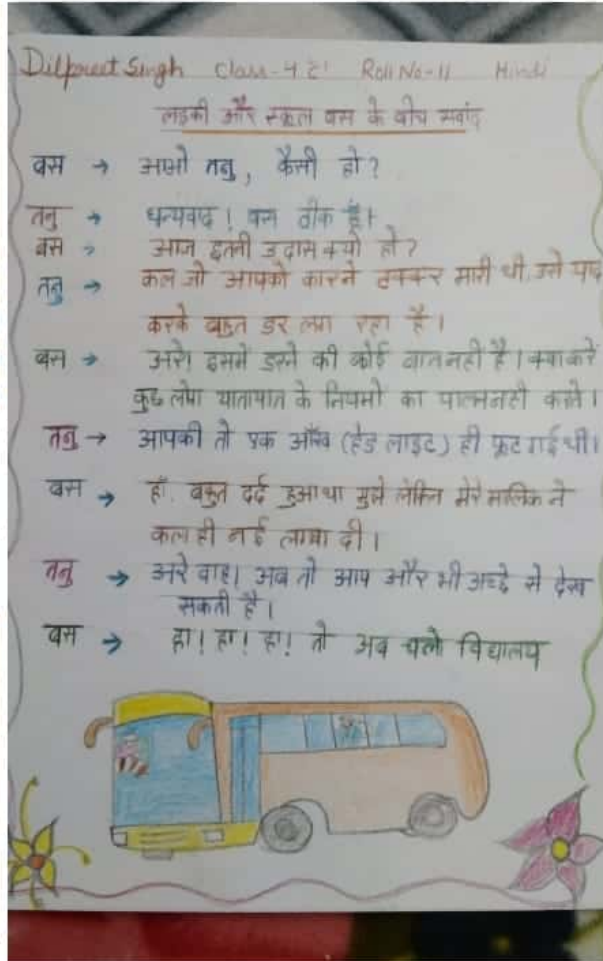 Dilpreet Singh Class-4 'C' Roll No-11 Hindi
लड़की और स्कूल बस के बीच संवाद
बस → आओ तनु, कैसी हो?
तनु → धन्यवाद! बस ठीक हूँ।
बस → आज इतनी उदास क्यों हो?
तनु → कल जो आपको कारने टक्कर मारी थी, उसे याद
करके बहुत डर लग रहा है।
बस → अरे! इसमें डरने की कोई बात नही है। क्या करें
कुछ लोग यातायात के नियमों का पालन नही करते।
तनु → आपकी तो एक आँख (हेड लाइट) ही फूट गई थी।
बस → हाँ, बहुत दर्द हुआ था मुझे लेकिन मेरे मालिक ने
कल ही नई लगवा दी।
तनु → अरे वाह! अब तो आप और भी अच्छे से देख
सकती है।
बस → हा! हा! हा! तो अब चलो विद्यालय